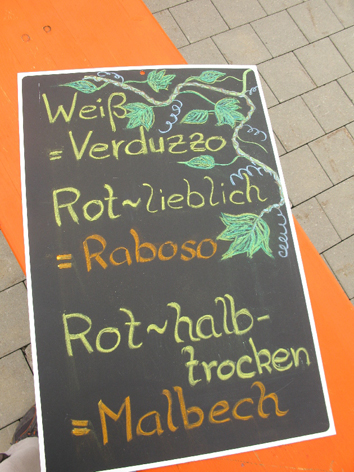 Weiß
= Verduzzo
Rot~lieblich
= Raboso
Rot~halb-
trocken
= Malbech